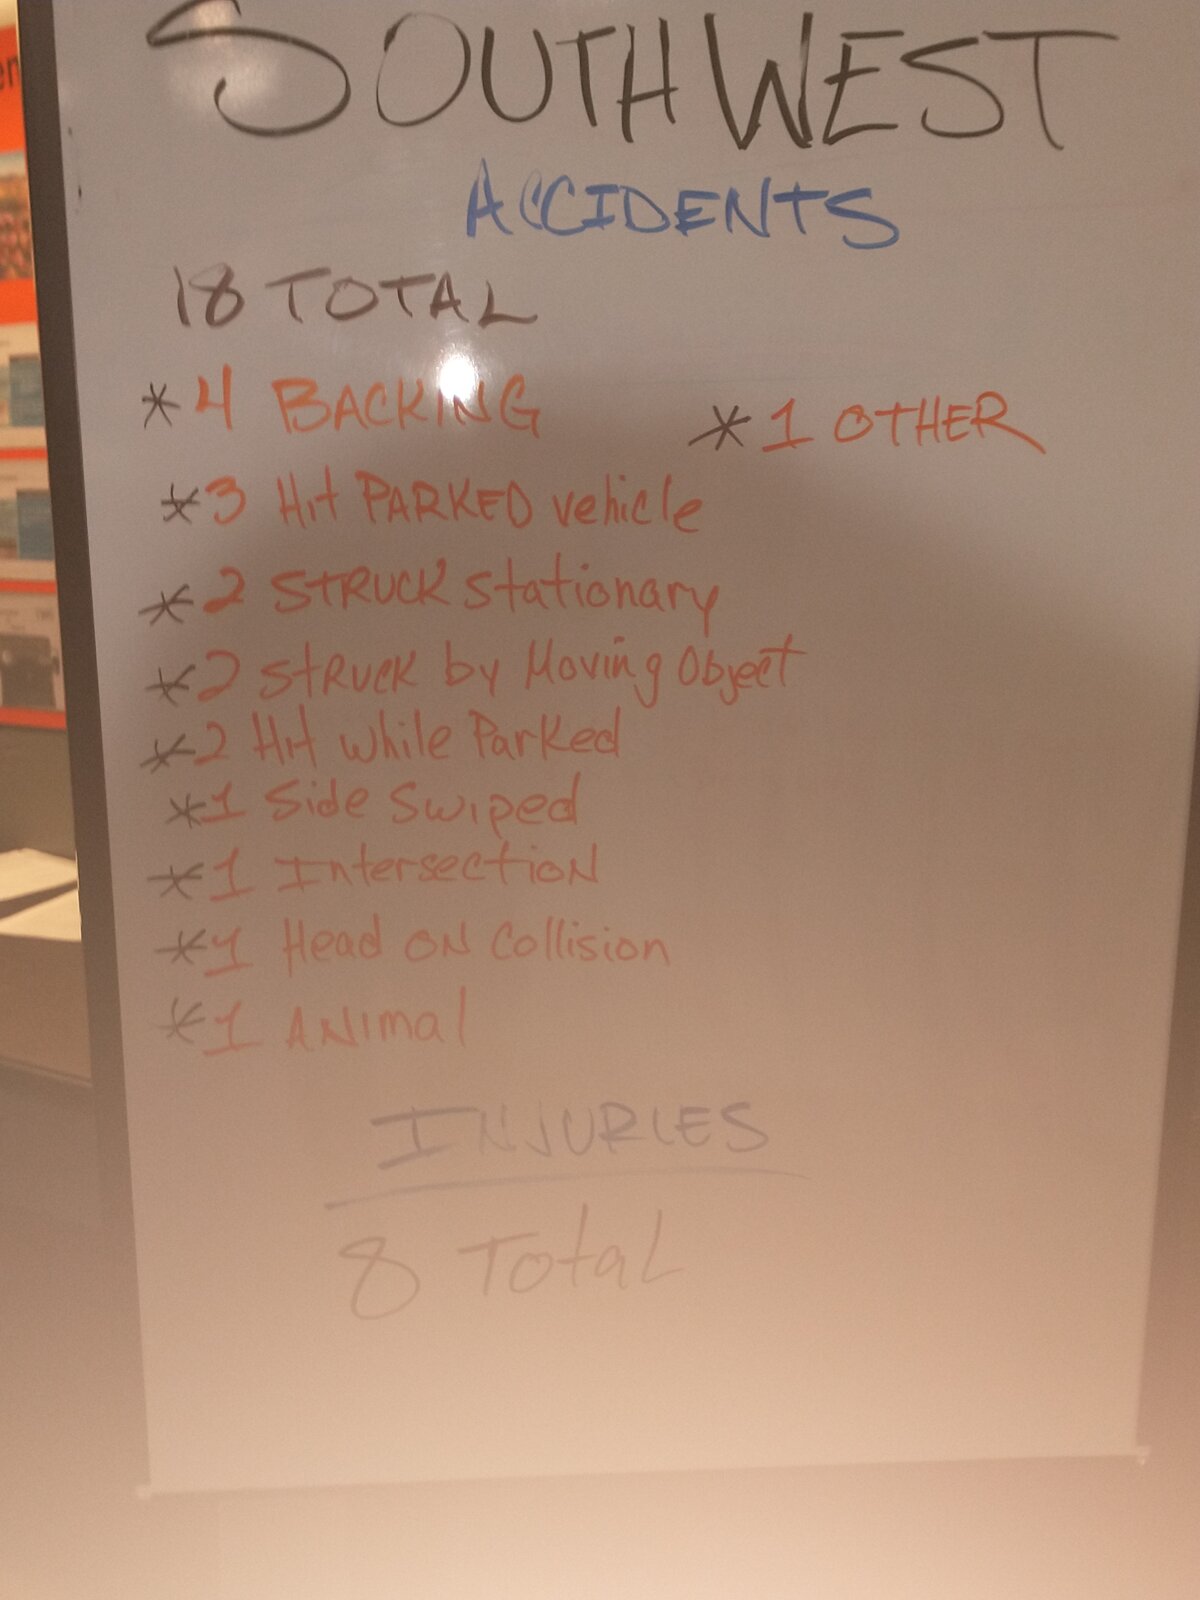 SOUTHWEST
ACCIDENTS
18 TOTAL
*4 BACKING
*1 OTHER
*3 Hit PARKED vehicle
*2 STRUCK stationary
*2 STRUCK by Moving Object
*2 Hit while Parked
*1 Side Swiped
*1 Intersection
*1 Head ON Collision
*1 ANimal
INJURIES
8 Total